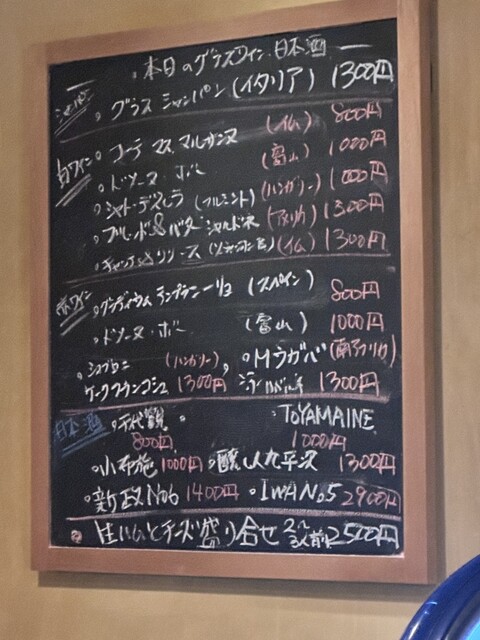 本日のグラスワイン・日本酒
シャンパン
グラス シャンパン (イタリア) 1300円
白ワイン
コーテ マス マルサンヌ (仏) 800円
ドメーヌ・ボー (富山) 1000円
シャトー・デレスラ (フルミント) (ハンガリー) 1000円
ブレッド&バター シャルドネ (アメリカ) 1300円
(仏) 1300円
赤ワイン
テンプラニーリョ (スペイン) 800円
ドメーヌ・ボー (富山) 1000円
(ハンガリー) 1300円
Mウガバ (南アフリカ)
1300円
日本酒
千代鶴 800円
TOYAMAINE 1000円
小布施 1000円
醸し人九平次 1300円
新政No6 1400円
IWA No5 2900円
生ハムとチーズ盛り合せ 2〜3人前 2500円